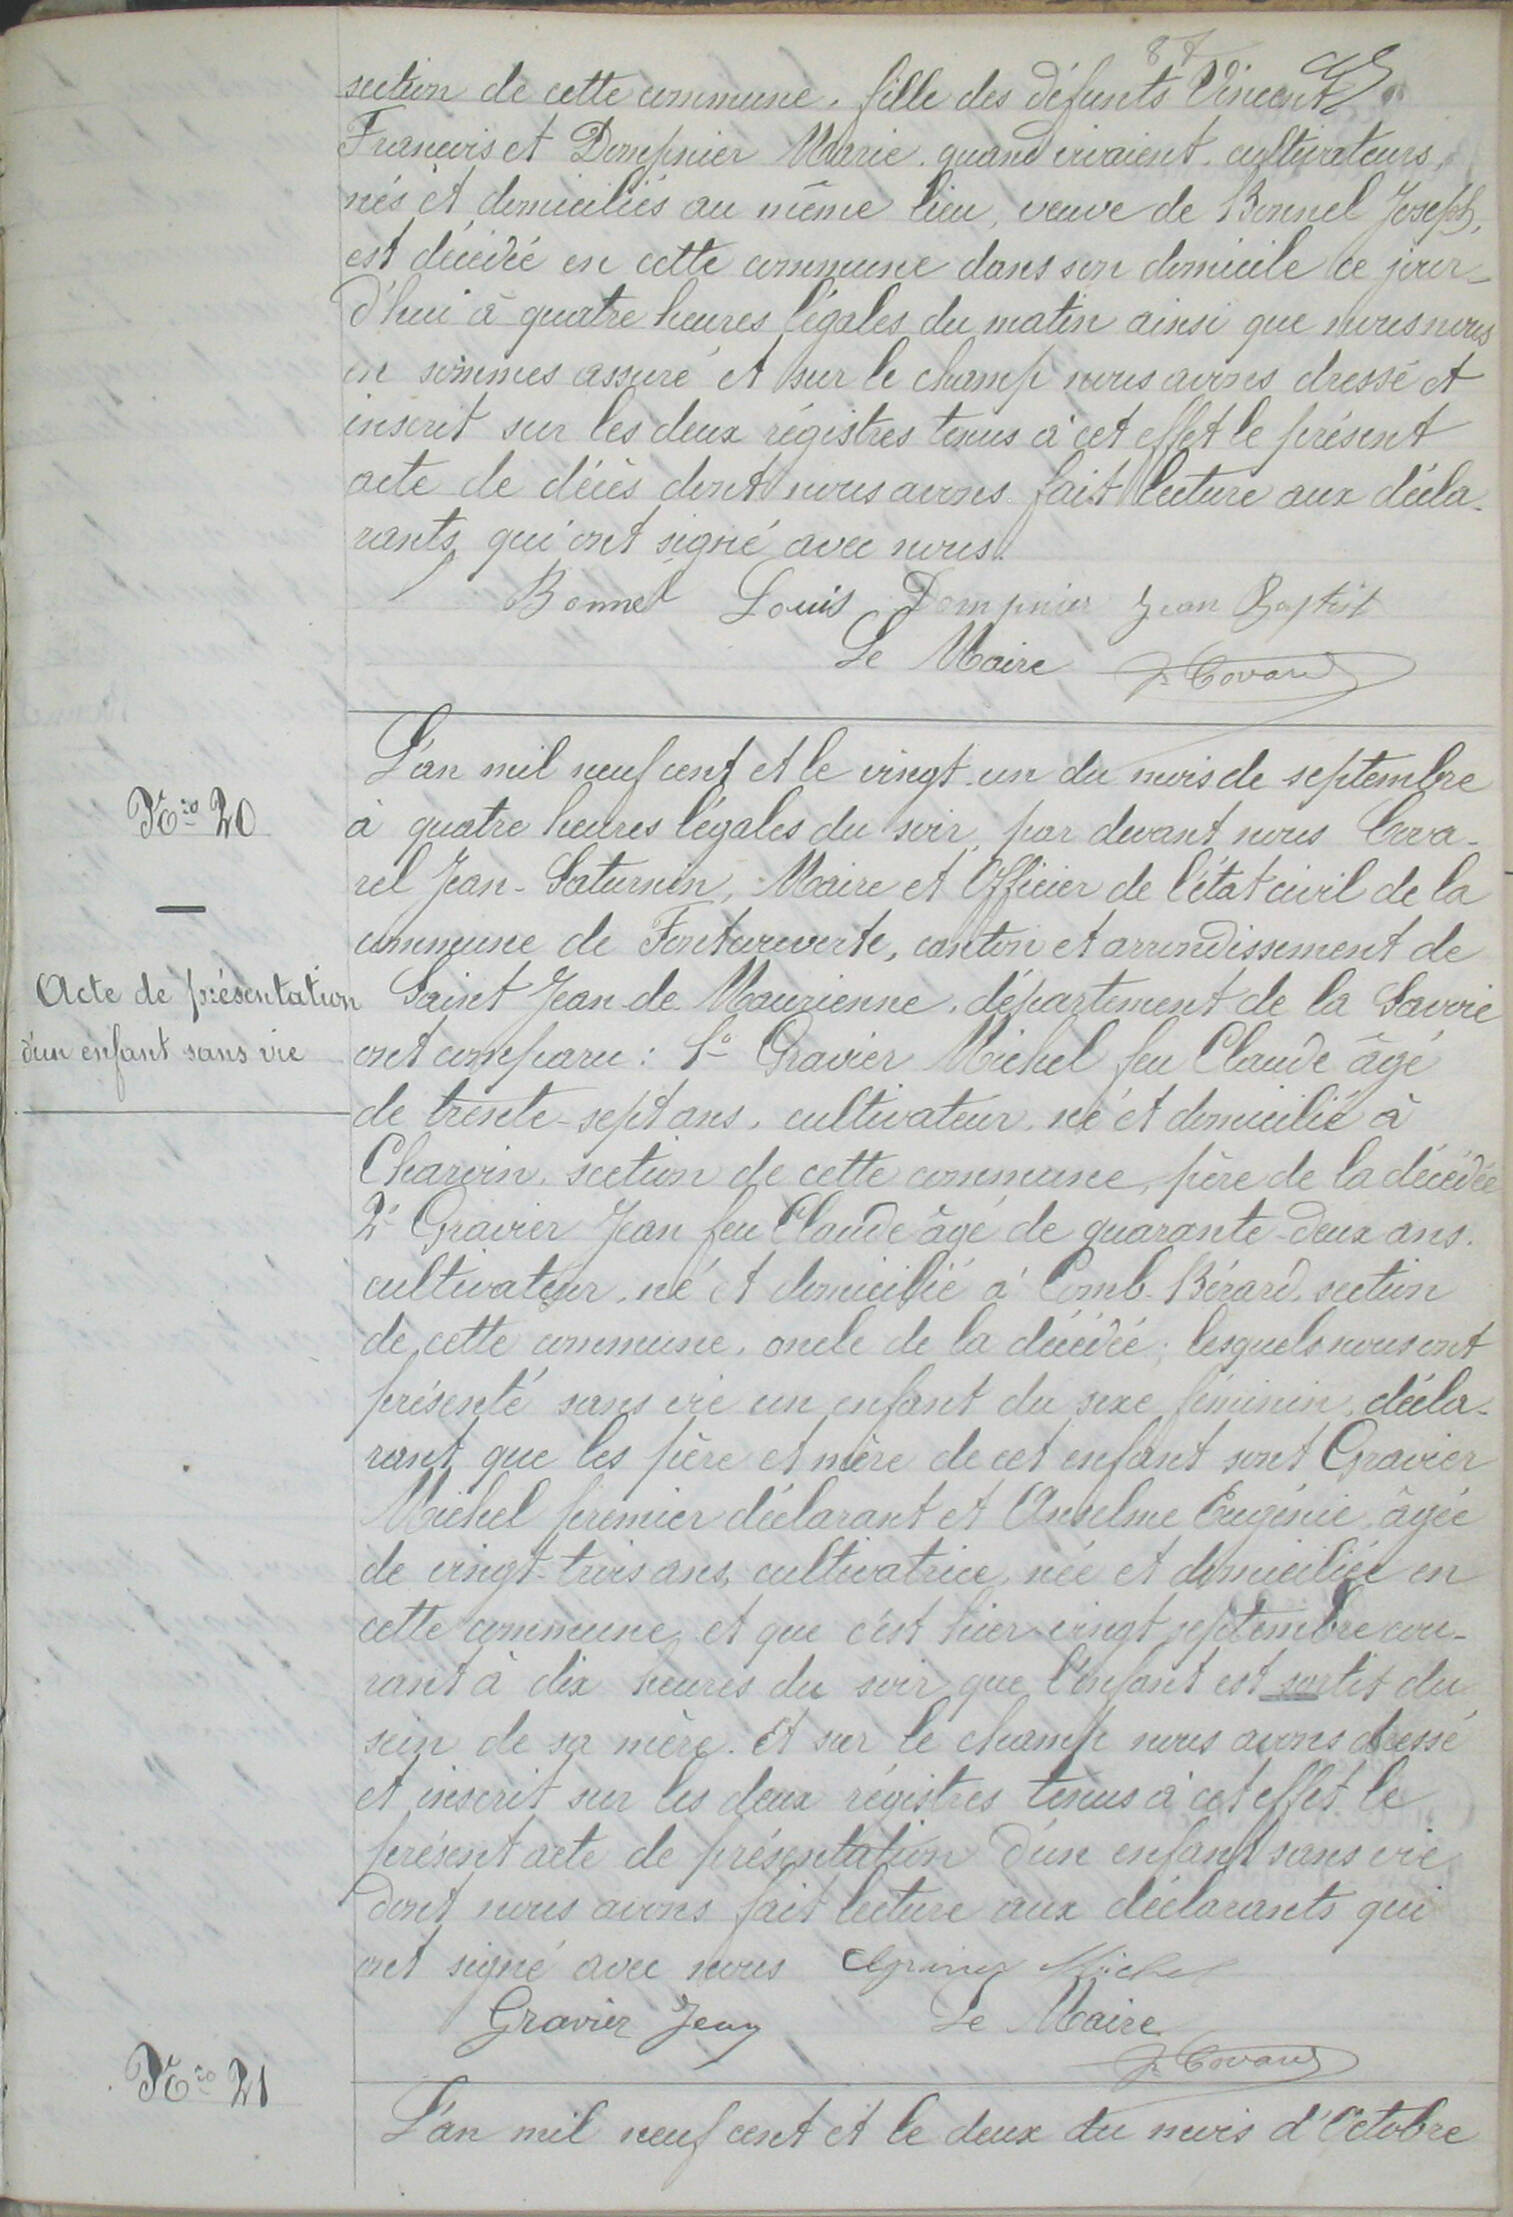 87
section de cette commune, fille des défunts Vincent
François et Dompnier Marie, quand vivaient, cultivateurs,
nés et domiciliés au même lieu, veuve de Bonnel Joseph,
est décédée en cette commune dans son domicile ce jour-
d'hui à quatre heures légales du matin ainsi que nous nous
en sommes assuré et sur le champ nous avons dressé et
inscrit sur les deux régistres tenus à cet effet le présent
acte de décès dont nous avons fait lecture aux décla-
rants qui ont signé avec nous.
Bonnel Louis Dompnier Jean Baptist
Le Maire J. Covarel
Nro 20
Acte de présentation
d'un enfant sans vie
L'an mil neuf cent et le vingt-un du mois de septembre
à quatre heures légales du soir, par devant nous Cova-
rel Jean-Saturnin, Maire et Officier de l'état civil de la
commune de Fontcouverte, canton et arrondissement de
Saint Jean de Maurienne, département de la Savoie
ont comparu : 1o Gravier Michel feu Claude âgé
de trente-sept ans, cultivateur, né et domicilié à
Charvin, section de cette commune, père de la décédée
2o Gravier Jean feu Claude âgé de quarante-deux ans,
cultivateur, né et domicilié à Comb-Bérard, section
de cette commune, oncle de la décédée; lesquels nous ont
présenté sans vie un enfant du sexe féminin, décla-
rant que les père et mère de cet enfant sont Gravier
Michel premier déclarant et Anselme Eugénie, âgée
de vingt-trois ans, cultivatrice, née et domiciliée en
cette commune, et que c'est hier vingt septembre cou-
rant à dix heures du soir que l'enfant est sortit du
sein de sa mère. Et sur le champ nous avons dressé
et inscrit sur les deux régistres tenus à cet effet le
présent acte de présentation d'un enfant sans vie
dont nous avons fait lecture aux déclarants qui
ont signé avec nous Gravier Michel
Gravier Jean Le Maire
J. Covarel
Nro 21
L'an mil neuf cent et le deux du mois d'Octobre